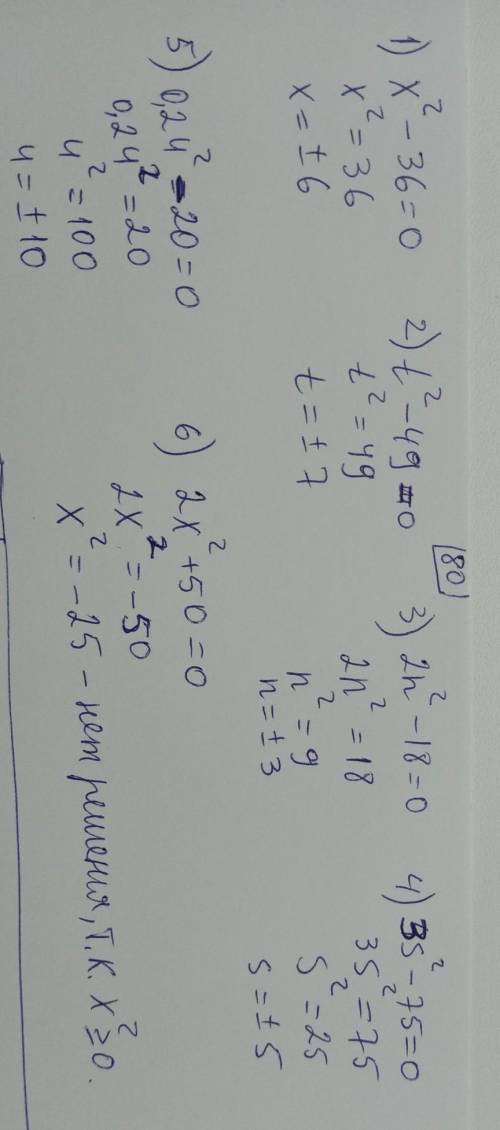 80
1) x² - 36 = 0
x² = 36
x = ± 6
2) t² - 49 = 0
t² = 49
t = ± 7
3) 2n² - 18 = 0
2n² = 18
n² = 9
n = ± 3
4) 3s² - 75 = 0
3s² = 75
s² = 25
s = ± 5
5) 0,2u² - 20 = 0
0,2u² = 20
u² = 100
u = ± 10
6) 2x² + 50 = 0
2x² = -50
x² = -25 - нет решения, т.к. x² ≥ 0.